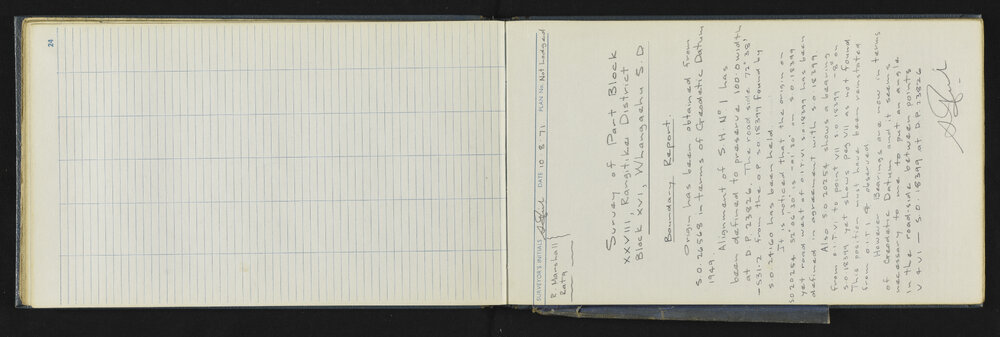 24
SURVEYOR'S INITIALS DATE 10.8.71 PLAN No. Not Lodged
R. Marshall
Rata
Survey of Part Block
XXVIII, Rangitike District
Block XVI, Whangaehu S.D
Boundary Report.
Origin has been obtained from
S.O. 26568 in terms of Geodetic Datum
1949
Alignment of S.H No 1 has
been defined to preserve 100.0 width
at D.P. 23826. The road side 72° 38'
-531.2 from the O.P. S.O 18399 found by
S.O. 24160 has been held.
It is noticed that the origin on
S.O 20254 52° 06' 30" is -01' 30" on S.O. 18399
yet road west of O.I.T. VI S.O 18399 has been
defined in agreement with S.O 18399
Also S.O. 20254 shows a bearing
from O.I.T. VI to point VII S.O 18399 -8" on
S.O 18399 yet shows peg VII as not found.
This position must have been reinstated
from O.I.T 1 & observed.
However Bearings are now in terms
of Geodetic Datum and it seems
necessary to me to put an angle
in the roadside between points
V & VI - S.O. 18399 at D.P. 23826